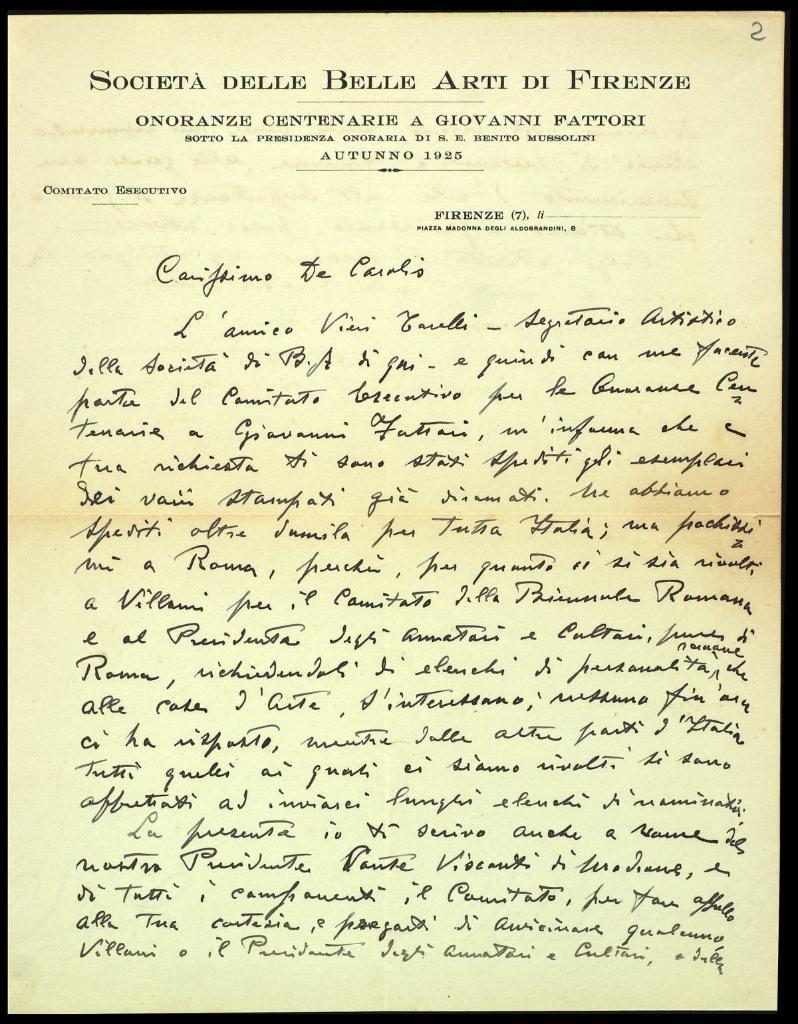 2
SOCIETÀ DELLE BELLE ARTI DI FIRENZE
ONORANZE CENTENARIE A GIOVANNI FATTORI
SOTTO LA PRESIDENZA ONORARIA DI S. E. BENITO MUSSOLINI
AUTUNNO 1925
COMITATO ESECUTIVO
FIRENZE (7), li
PIAZZA MADONNA DEGLI ALDOBRANDINI, 8
Carissimo De Carolis
L'amico Vieri Torelli - Segretario Artistico
della Società di B. A. di qui - e quindi con me facente
parte del Comitato Esecutivo per le Onoranze Cen
tenarie a Giovanni Fattori, m'informa che a
tua richiesta ti sono stati spediti gli esemplari
dei varii stampati già diramati. Ne abbiamo
spediti oltre dumila per tutta Italia; ma pochissi
mi a Roma, perchè, per quanto ci si sia rivolti
a Villani per il Comitato della Biennale Romana
e al Presidente degli Amatori e Cultori, pure di
Roma, richiedendoli di elenchi di personalità romane che
alle cose d'Arte s'interessano; nessuno fin'ora
ci ha risposto, mentre dalle altre parti d'Italia
tutti quelli ai quali ci siamo rivolti si sono
affrettati ad inviarci lunghi elenchi di nominativi.
La presente io ti scrivo anche a nome del
nostro Presidente Dante Visconti di Modrone, e
di tutti i componenti il Comitato, per fare appello
alla tua cortesia, e pregarti di avvicinare qualcuno
Villani o il Presidente degli Amatori e Cultori, e